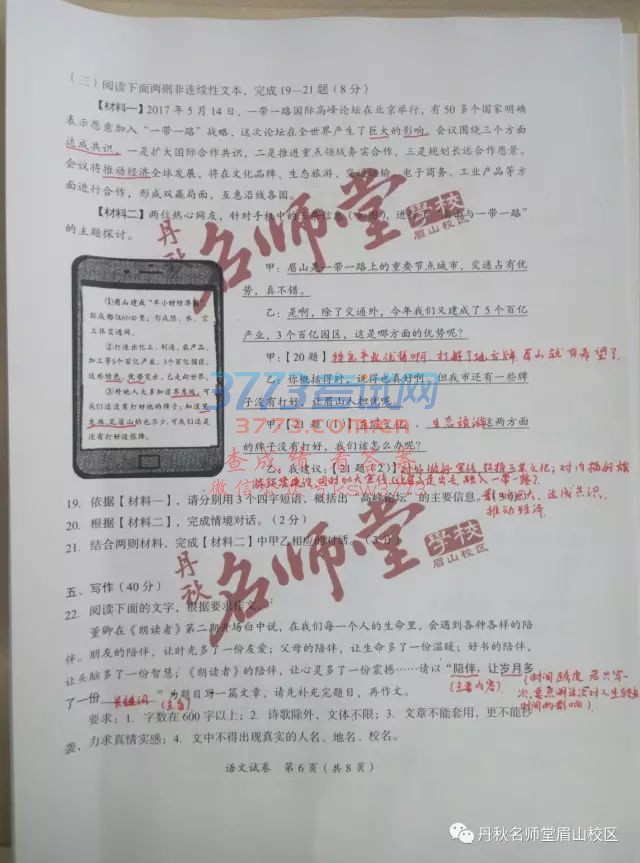 （三）阅读下面两则非连续性文本，完成19—21题（8分）
【材料一】2017年5月14日，一带一路国际高峰论坛在北京举行，有50多个国家明确
表示愿意加入“一带一路”战略，这次论坛在全世界产生了巨大的影响，会议围绕三个方面
达成共识，一是扩大国际合作共识，二是推进重点领域务实合作，三是规划长远合作愿景。
会议将推动经济全球发展，将在文化品牌、生态旅游、交通运输、电子商务、工业产品等方
面进行合作，形成双赢局面，互惠沿线各国。
【材料二】两位热心网友，针对手机中的三条信息（如图），进行了“眉山与一带一路”
的主题探讨。
①眉山建成“半小时经济圈”
距成都仅60公里；形成陆、水、空
立体交通网。
②打造出化工、制造、农产品、
加工等5个百亿产业，3个百亿园区。
这些特色、优势突出，已走向世界。
③外地人大多知道苏东坡，可
我们还没有打好他的牌子；知道黑
龙滩、瓦屋山的也不少，可我们还是
没有打好这张牌。
甲：眉山是一带一路上的重要节点城市，交通占有优
势，真不错。
乙：是啊，除了交通外，今年我们又建成了5个百亿
产业，3个百亿园区，这是哪方面的优势呢？
甲：【20题】特色产业优势啊，打好了地方牌，眉山就有希望了
乙：你概括得对，说得也真好啊，但我市还有一些牌
子没有打好，让眉山人担忧呢。
甲：【21题（1）】 文化、生态旅游这两方面
的牌子没有打好，我们该怎么办呢？
乙：我建议：【21题（2）】对外做好宣传 三苏文化；对内搞好旅
同时加大宣传
19. 依据【材料一】，请分别用3个四字短语，概括出“高峰论坛”的主要信息。影响巨大、达成共识、
推动经济
20. 根据【材料二】，完成情境对话。（2分）
21. 结合两则材料，完成【材料二】中甲乙相应的对话。（3分）
五、写作（40分）
22. 阅读下面的文字，根据要求作文。
董卿在《朗读者》第二期开场白中说，在我们每一个人的生命里，会遇到各种各样的陪
伴。朋友的陪伴，让时光多了一份友爱；父母的陪伴，让生命多了一份温暖；好书的陪伴，
让头脑多了一份智慧；《朗读者》的陪伴，让心灵多了一份震撼……请以“陪伴，让岁月多
了一份 关键词 ”为题目写一篇文章，请先补充完题目，再作文。
（主旨）
（主要内容）
（时间跨度，若只写一
次，重点 这次对人生
时间的影响）
要求：1. 字数在600字以上；2. 诗歌除外，文体不限；3. 文章不能套用，更不能抄
袭，力求真情实感；4. 文中不得出现真实的人名、地名、校名。
语文试卷 第6页（共8页）
丹秋
名师堂
学校
眉山校区
3773考试网
3773.com
查成绩 看答案
丹秋
名师堂
学校
眉山校区
丹秋名师堂眉山校区